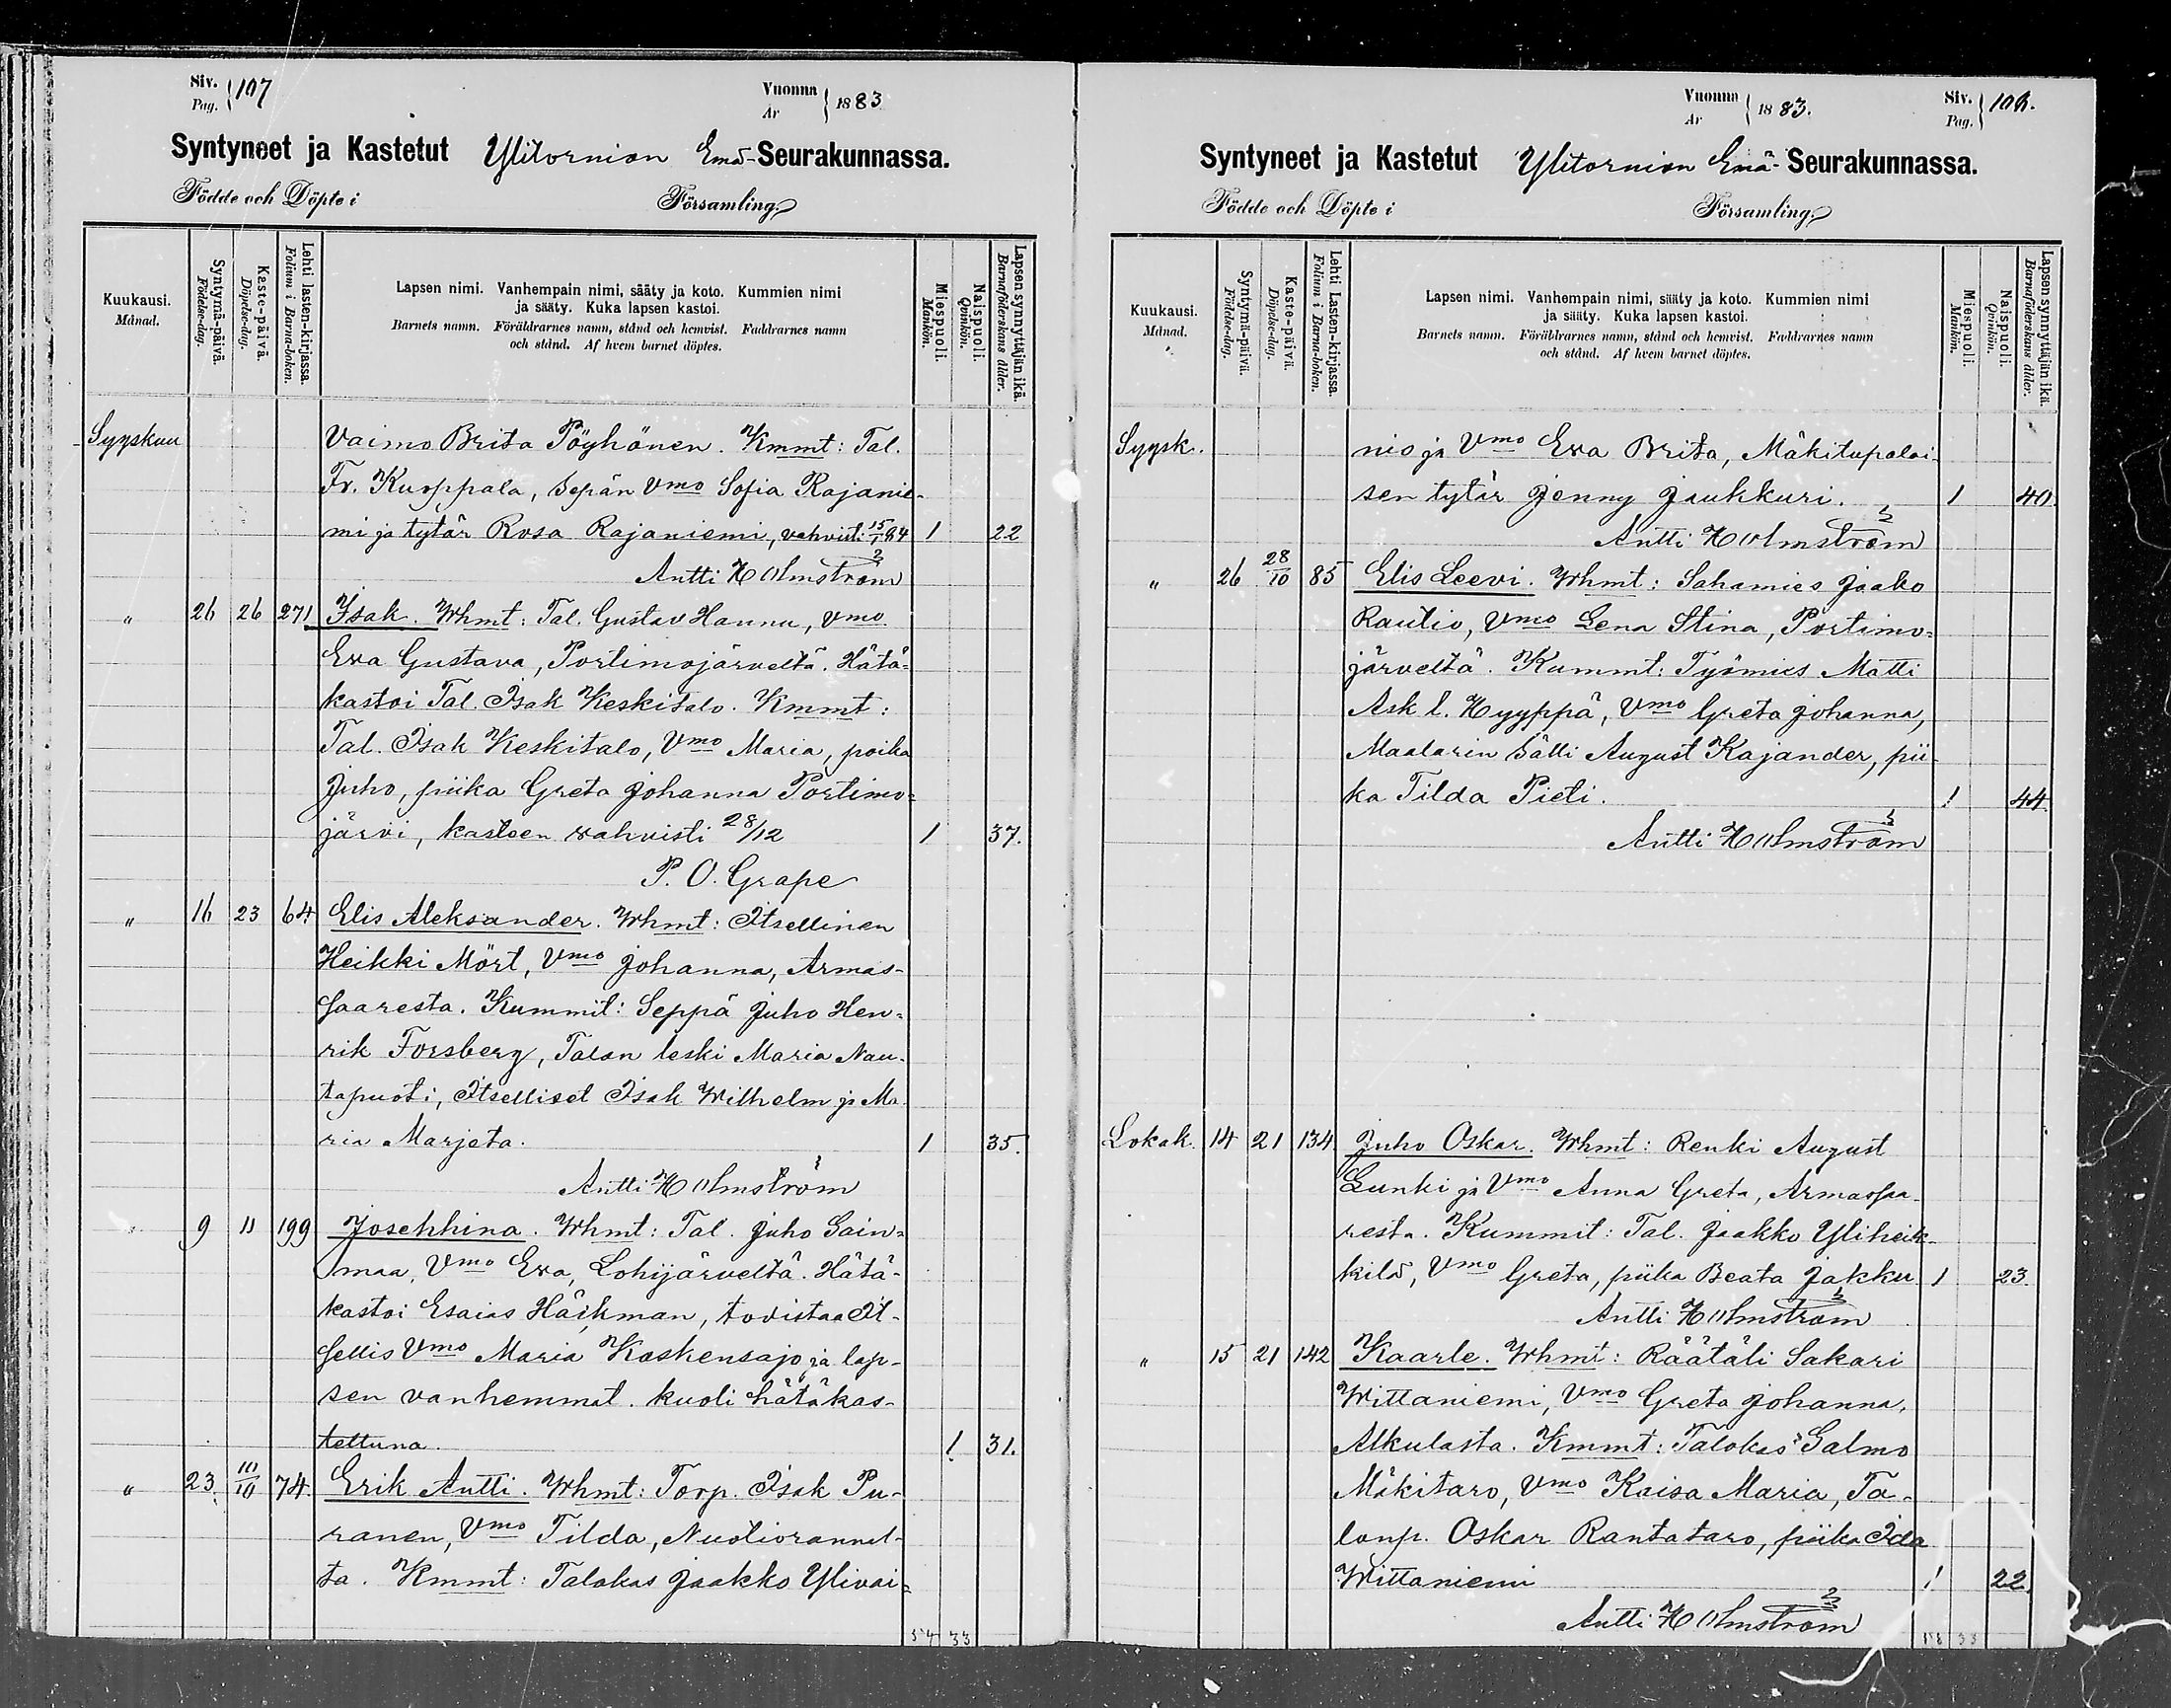 Siv.
Pag. 107
Vuonna
År 1883
Syntyneet ja Kastetut Ylitornion Emä-Seurakunnassa.
Födde och Döpte i Församling.
Kuukausi.
Månad.
Syntymä-päivä.
Födelse-dag.
Kaste-päivä.
Döpelse-dag.
Lehti lasten-kirjassa.
Folium i Barna-boken.
Lapsen nimi. Vanhempain nimi, sääty ja koto. Kummien nimi
ja sääty. Kuka lapsen kastoi.
Barnets namn. Föräldrarnes namn, stånd och hemvist. Faddrarnes namn
och stånd. Af hvem barnet döptes.
Miespuoli.
Mankön.
Naispuoli.
Qvinkön.
Lapsen synnyttäjän ikä.
Barnaföderskans ålder.
Syyskuu Vaimo Brita Pöyhönen. Kmmt: Tal.
Fr. Kurppala, sepän Vmo Sofia Rajanie-
mi ja tytär Rosa Rajaniemi, vahvist: 15/1 84 1 22
Antti Holmström
" 26 26 271 Isak. Whmt: Tal. Gustav Hannu, Vmo
Ewa Gustava, Portimojärveltä. Hätä-
kastoi Tal. Isak Keskitalo. Kmmt:
Tal. Isak Keskitalo, Vmo Maria, poika
Juho, piika Greta Johanna Portimo-
järvi, kasteen wahvisti 28/12 1 37.
P. O. Grape
" 16 23 64 Elis Aleksander. Whmt: Itsellinen
Heikki Mört, Vmo Johanna, Armas-
saaresta. Kummit: Seppä Juho Hen-
rik Forsberg, Talon leski Maria Nau-
tapuoti, Itselliset Isak Wilhelm ja Ma
ria Marjeta. 1 35.
Antti Holmström
9 11 199 Josehhina. Whmt: Tal. Juho Sain-
maa, Vmo Ewa, Lohijärveltä. Hätä-
kastoi Esaias Häikman, todistaa It-
sellis Vmo Maria Koskensajo ja lap-
sen vanhemmat. kuoli hätäkas-
tettuna. 1 31.
" 23. 10/10 74. Erik Antti. Whmt: Torp. Isak Pu-
ranen, Vmo Tilda, Nuoliorannal-
ta. Kmmt: Talokas Jaakko Ylivai-
54 33
Vuonna
År 1883.
Siv.
Pag. 108.
Syntyneet ja Kastetut Ylitornion Emä-Seurakunnassa.
Födde och Döpte i Församling.
Kuukausi.
Månad.
Syntymä-päivä.
Födelse-dag.
Kaste-päivä.
Döpelse-dag.
Lehti Lasten-kirjassa.
Folium i Barna-boken.
Lapsen nimi. Vanhempain nimi, sääty ja koto. Kummien nimi
ja sääty. Kuka lapsen kastoi.
Barnets namn. Föräldrarnes namn, stånd och hemvist. Faddrarnes namn
och stånd. Af hvem barnet döptes.
Miespuoli.
Mankön.
Naispuoli.
Qvinkön.
Lapsen synnyttäjän ikä.
Barnaföderskans ålder.
Syysk. nio ja Vmo Ewa Brita, Mäkitupalai-
sen tytär Jenny Jaukkuri. 1 40.
Antti Holmström
" 26 28/10 85 Elis Leevi. Whmt: Sahamies Jaako
Rautio, Vmo Lena Stina, Portimo-
järveltä. Kummt: Työmies Matti
Ask l. Hyyppä, Vmo Greta Johanna,
Maalarin sälli August Kajander, pii-
ka Tilda Pieti. 1 44.
Antti Holmström
Lokak. 14 21 134 Juho Oskar. Whmt: Renki August
Lunki ja Vmo Anna Greta, Armassaa-
resta. Kummit: Tal. Jaakko Yliheik-
kilä, Vmo Greta, piika Beata Jakku 1 23.
Antti Holmström
" 15 21 142 Kaarle. Whmt: Räätäli Sakari
Wittaniemi, Vmo Greta Johanna,
Alkulasta. Kmmt: Talokas Salmo
Mäkitaro, Vmo Kaisa Maria, Ta-
lonp. Oskar Rantataro, piika Ida
Wittaniemi 1 22.
Antti Holmström